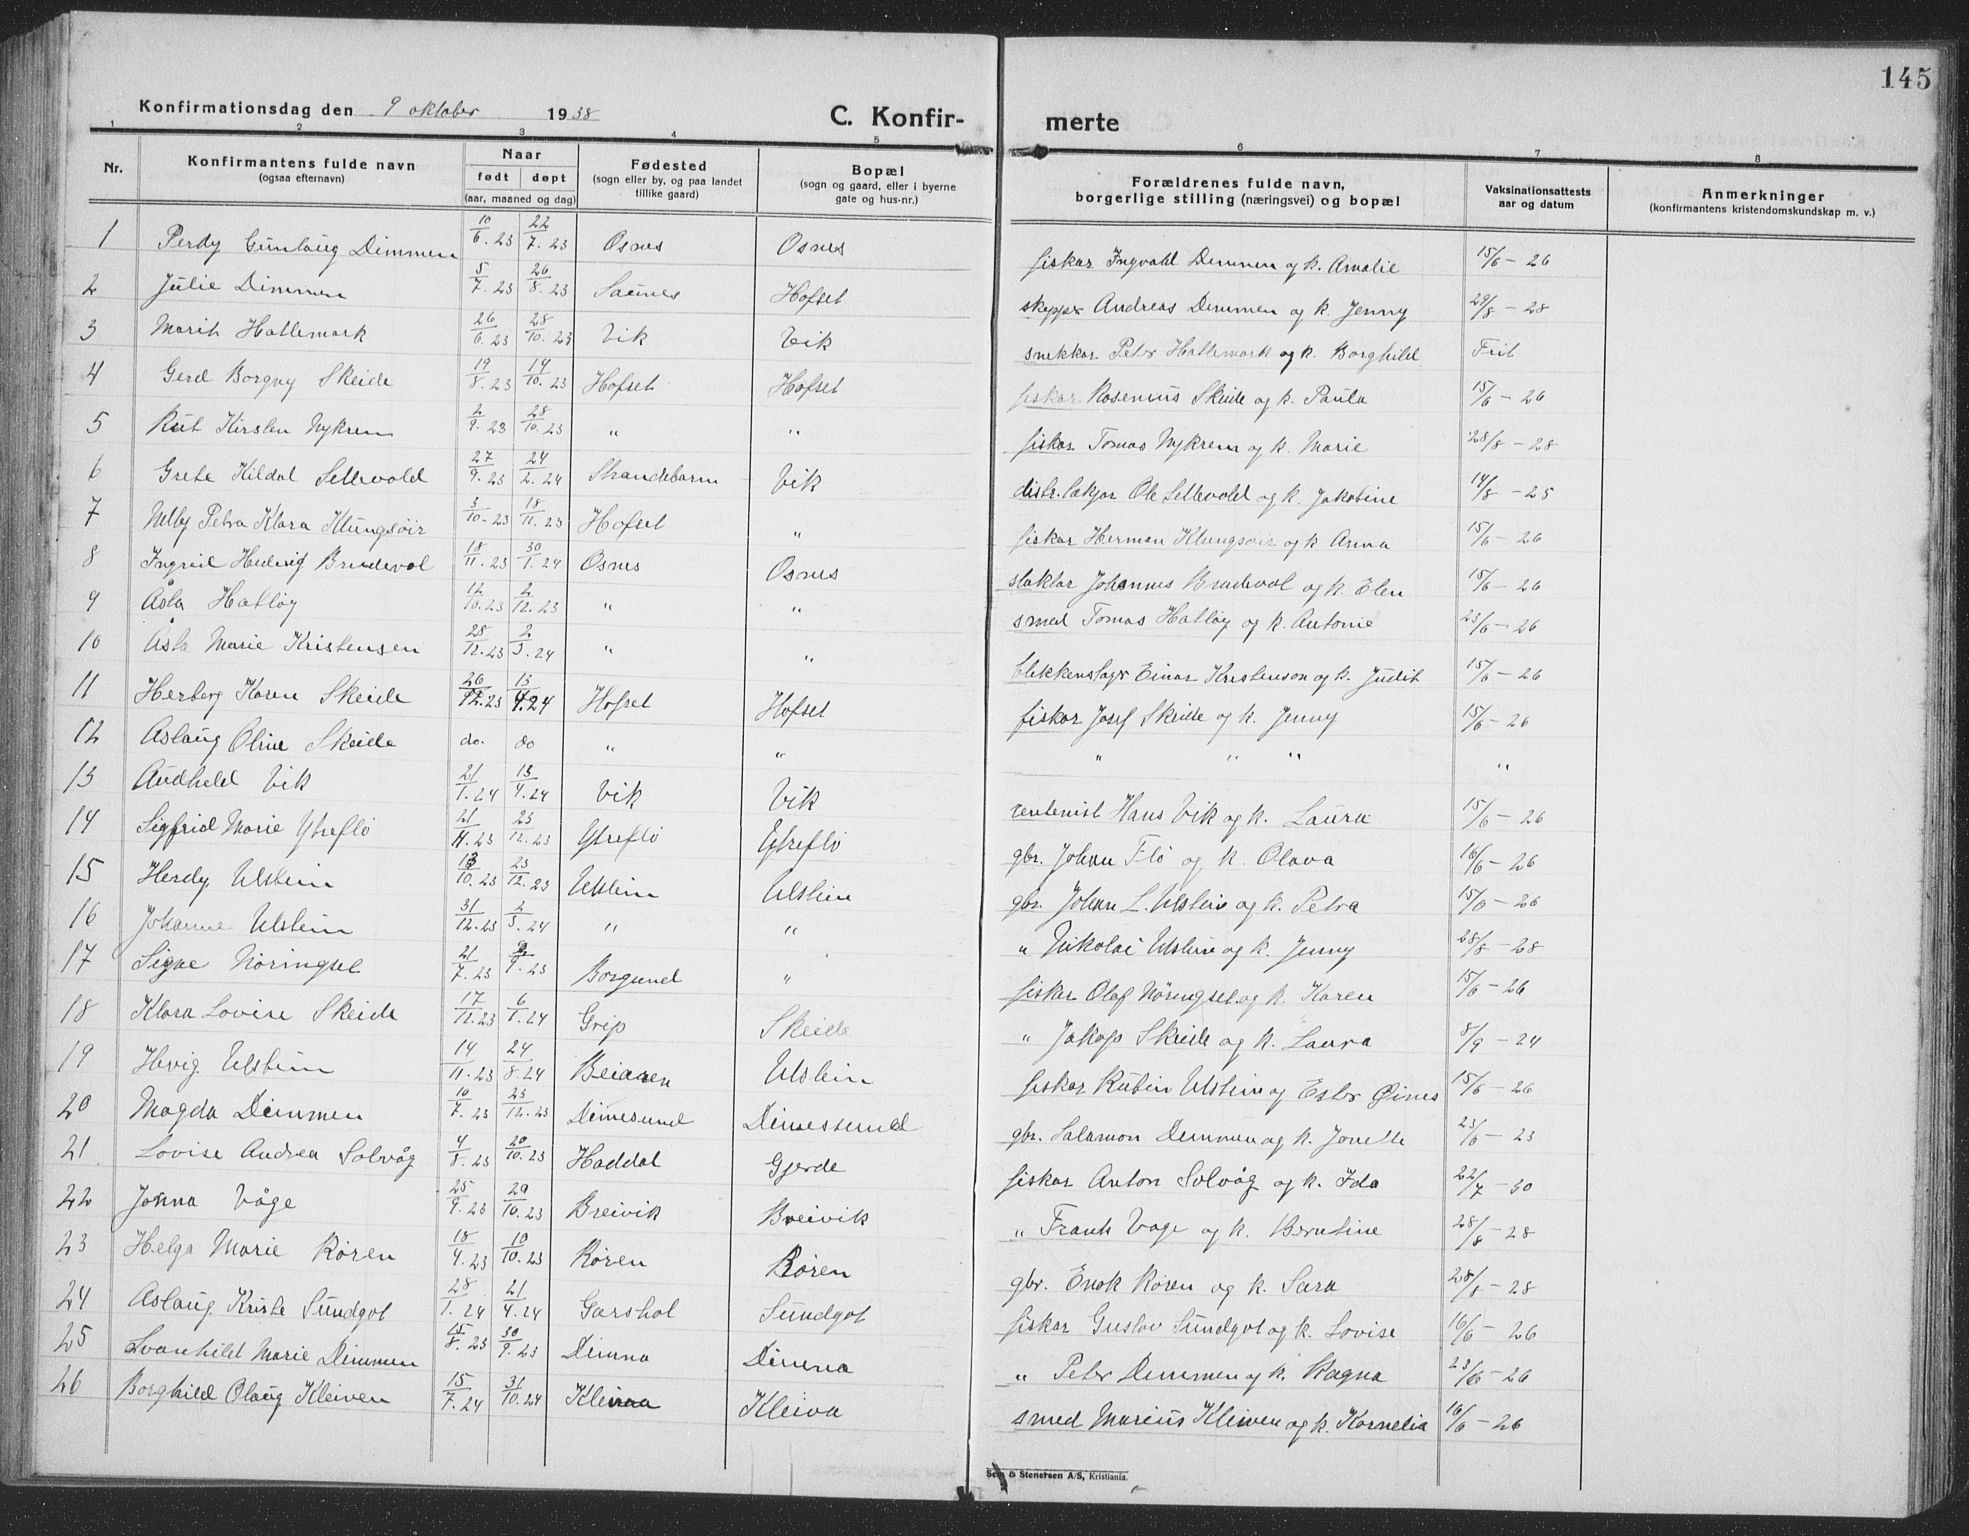 145
Konfirmationsdag den 9 oktober 1938 C. Konfir- merte
1 2 3 4 5 6 7 8
Nr. Konfirmantens fulde navn (ogsaa efternavn) Naar født døpt (aar, maaned og dag) Fødested (sogn eller by, og paa landet tillike gaard) Bopæl (sogn og gaard, eller i byerne gate og hus-nr.) Forældrenes fulde navn, borgerlige stilling (næringsvei) og bopæl Vaksinationsattests aar og datum Anmerkninger (konfirmantens kristendomskundskap m. v.)
1 Perdy Gunlaug Dimmen 10/6. 23 22/7. 23 Osnes Osnes fiskar Ingvald Dimmen og k. Amalie 15/6 - 26
2 Julie Dimmen 5/7. 23 26/8. 23 Saunes Hofset skipper Andreas Dimmen og k. Jenny 29/8 - 28
3 Marit Hallemark 26/6. 23 28/10. 23 Vik Vik snekkar Peter Hallemark og k. Borghild Frit
4 Gerd Borgny Skeide 19/8. 23 14/10. 23 Hofset Hofset fiskar Rosenius Skeide og k. Paula 15/6 - 26
5 Rut Kirsten Nykrem 2/9. 23 28/10. 23 " " fiskar Tomas Nykrem og k. Marie 28/8 - 28
6 Grete Kildal Sellevold 27/9. 23 24/2. 24 Strandebarm Vik distr. lækjar Ole Sellevold og k. Jakobine 14/8 - 25
7 Nelly Petra Klara Klungsöir 3/10. 23 18/11. 23 Hofset " fiskar Herman Klungsöir og k Anna 15/6 - 26
8 Ingrid Hedvig Brudevol 18/11. 23 30/1. 24 Osnes Osnes slaktar Johannes Brudevol og k. Elen 15/6 - 26
9 Åsta Hatløy 12/10. 23 2/12. 23 " " smed Tomas Hatløy og k. Antonie 23/6 - 26
10 Åsta Marie Kristensen 28/12. 23 2/3. 24 " " blekkenslagr Einar Kristenson og k. Judit 15/6 - 26
11 Herberg Karen Skeide 26/12. 23 13/4. 24 Hofset Hofset fiskar Josef Skeide og k. Jenny 15/6 - 26
12 Aslaug Oline Skeide do. do " " " " " "
13 Audhild Vik 21/1. 24 13/4. 24 Vik Vik rentenist Hans Vik og k. Laura 15/6 - 26
14 Sigfrid Marie Ytreflö 21/11. 23 23/12. 23 Ytreflö Ytreflö gbr. Johan Flö og k. Olava 16/6 - 26
15 Herdy Ulstein 13/10. 23 23/12. 23 Ulstein Ulstein gbr. Johan L. Ulstein og k. Petra 15/6 - 26
16 Johanne Ulstein 31/12. 23 2/3. 24 " " " Nikolai Ulstein og k. Jenny 28/8 - 28
17 Signe Nøringset 21/7. 23 2/9. 23 Borgund " fiskar Olaf Nøringset og k. Karen 15/6 - 26
18 Klara Lovise Skeide 17/12. 23 6/1. 24 Grip Skeide " Jakop Skeide og k. Laura 8/9 - 24
19 Hevig Ulstein 14/11. 23 24/8. 24 Beiaren Ulstein fiskar Rubin Ulstein og Ester Øines 15/6 - 26
20 Magda Dimmen 10/7. 23 23/12. 23 Dimesund Dimessund gbr. Salamon Dimmen og k. Jonette 23/6 - 23
21 Lovise Andrea Solvåg 4/8. 23 20/10. 23 Haddal Gjerde fiskar Anton Solvåg og k. Ida 22/7 - 30
22 Jonna Våge 25/9. 23 29/10. 23 Breivik Breivik " Frank Vage og k. Berntine 28/8 - 28
23 Helga Marie Røren 18/4. 23 10/10. 23 Røren Røren gbr. Enok Røren og k. Sara 28/8 - 28
24 Aslaug Kriste Sundgot 28/1. 24 21/4. 24 Garshol Sundgot fiskar Gustav Sundgot og k. Lovise 16/6 - 26
25 Svanhild Marie Dimmen 15/8. 23 30/9. 23 Dimna Dimna " Peter Dimmen og k. Ragna 23/6 - 26
26 Borghild Olaug Kleiven 15/7. 24 31/10. 24 Kleiva Kleiva smed Marius Kleiven og k. Kornelia 16/6 - 26
Sem & Stenersen A/S, Kristiania.